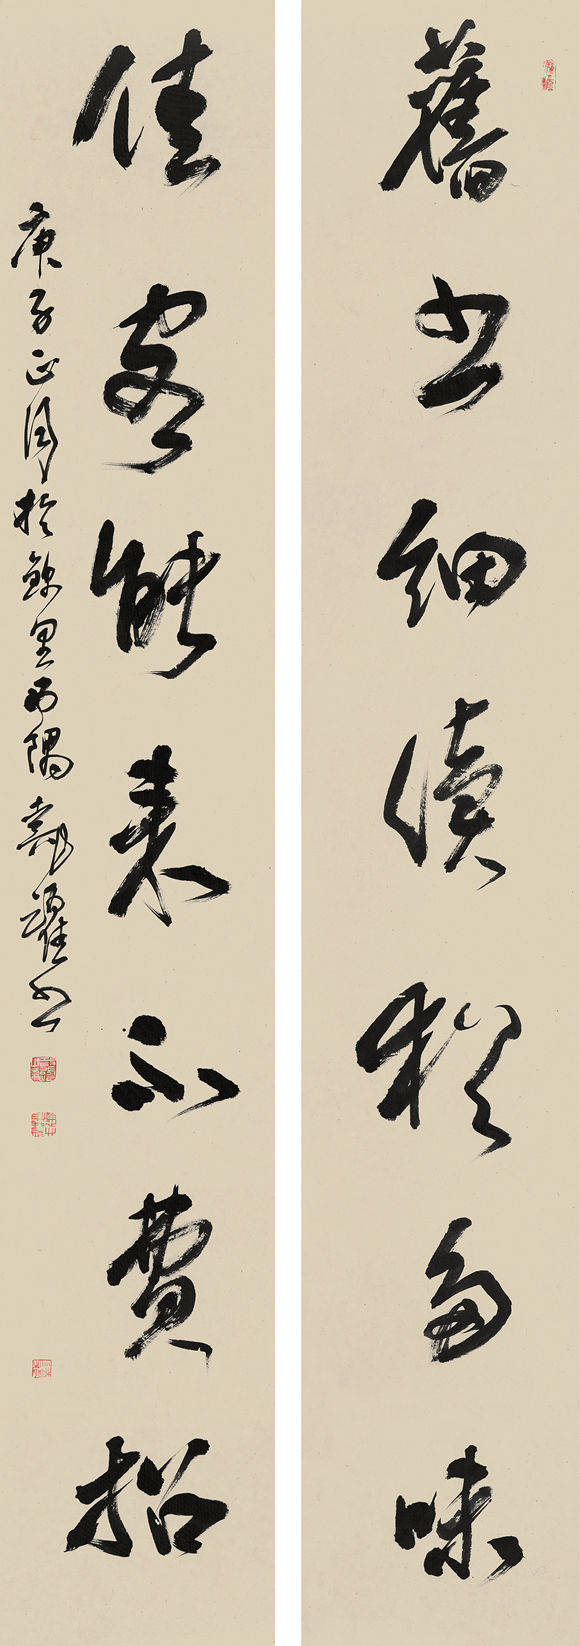 舊書細讀猶多味
佳客能來不費招
庚子正月於錦里西隅 戴躍書